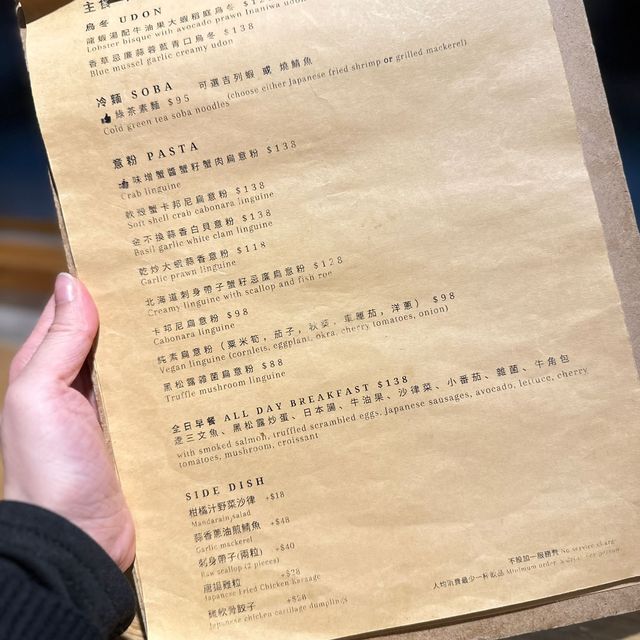 主食
烏冬 UDON
龍蝦湯配牛油果大蝦稻庭烏冬
Lobster bisque with avocado prawn Inaniwa udon
香草忌廉蒜蓉藍青口烏冬 $138
Blue mussel garlic creamy udon
冷麵 SOBA 可選吉列蝦 或 燒鯖魚
綠茶素麵 $95 (choose either Japanese fried shrimp or grilled mackerel)
Cold green tea soba noodles
意粉 PASTA
味增蟹醬蟹籽蟹肉扁意粉 $138
Crab linguine
軟殼蟹卡邦尼扁意粉 $138
Soft shell crab cabonara linguine
金不換蒜香白貝意粉 $138
Basil garlic white clam linguine
乾炒大蝦蒜香意粉 $118
Garlic prawn linguine
北海道刺身帶子蟹籽忌廉扁意粉 $128
Creamy linguine with scallop and fish roe
卡邦尼扁意粉 $98
Cabonara linguine
純素扁意粉 (粟米筍, 茄子, 秋葵, 車厘茄, 洋蔥) $98
Vegan linguine (cornlets, eggplant, okra, cherry tomatoes, onion)
黑松露雜菌扁意粉 $88
Truffle mushroom linguine
全日早餐 ALL DAY BREAKFAST $138
煙三文魚、黑松露炒蛋、日本腸、牛油果、沙律菜、小番茄、雜菌、牛角包
with smoked salmon, truffled scrambled eggs, Japanese sausages, avocado, lettuce, cherry
tomatoes, mushroom, croissant
SIDE DISH
柑橘汁野菜沙律 +$18
Mandarain salad
蒜香蔥油煎鯖魚 +$48
Garlic mackerel
刺身帶子(兩粒) +$40
Raw scallop (2 pieces)
唐揚雞粒 +$28
Japanese Fried Chicken Karaage
雞軟骨餃子 +$28
Japanese chicken cartilage dumplings
不設加一服務費 No service charge
人均消費最少一杯飲品 Minimum order 1 drink per person